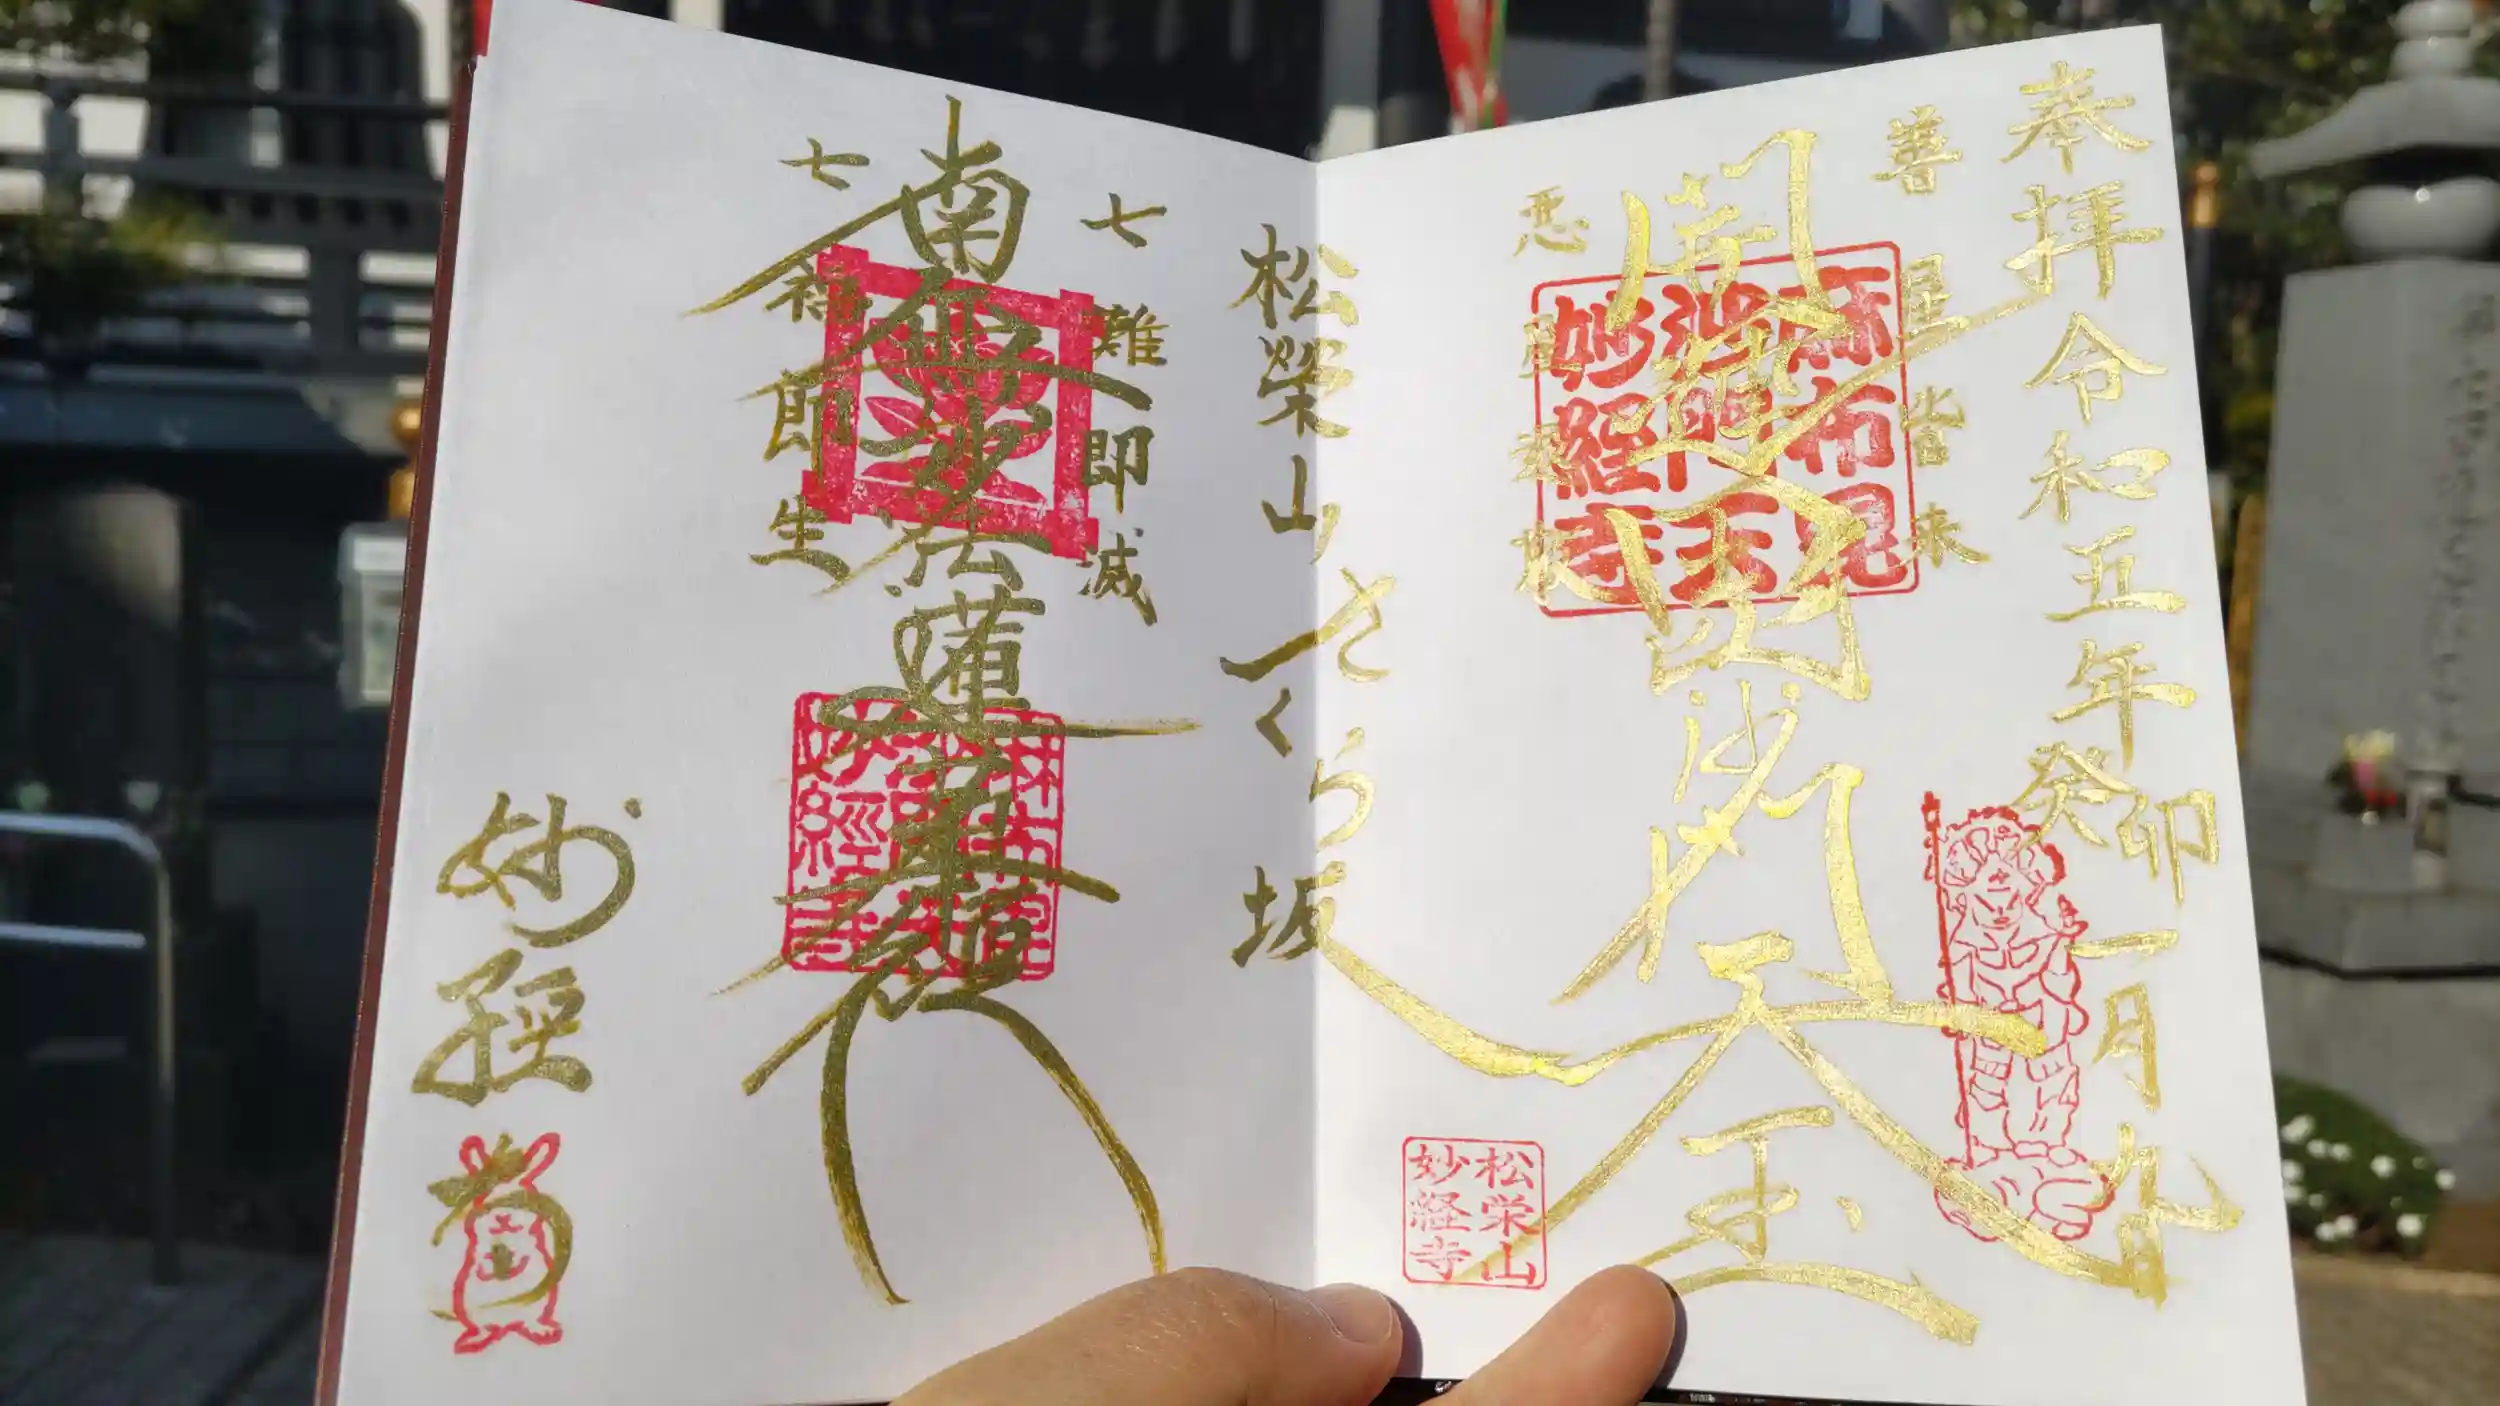 奉拝令和五年癸卯一月九日
善星皆来
開運
毘沙門天王
悪星退散
麻布
毘沙門天
妙経寺
松栄山
妙経寺
松榮山さくら坂
七難即滅
南無妙法蓮華経
七福即生
妙經寺
妙経